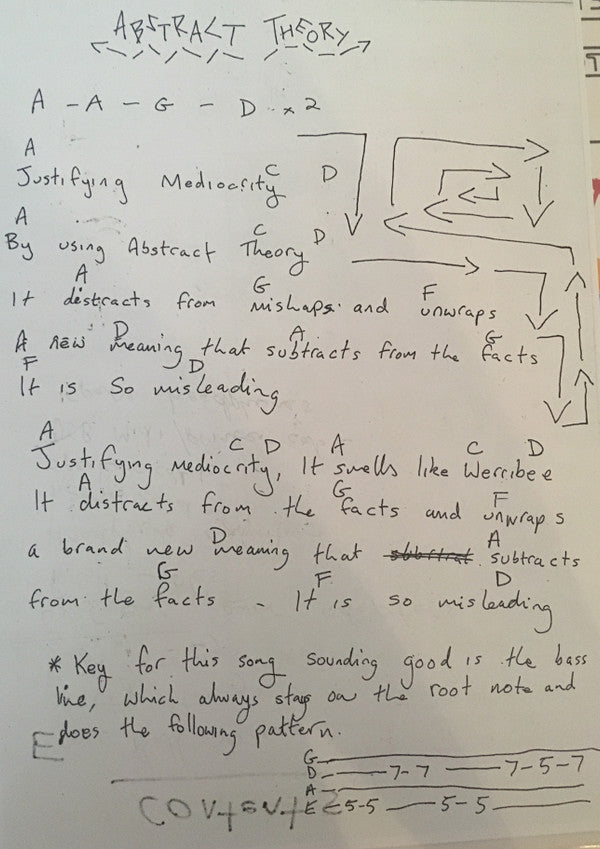 ABSTRACT THEORY
A - A - G - D x 2
A
Justifying Mediocrity C D
A C D
By using Abstract Theory
A G F
It distracts from mishaps and unwraps
D A G
A new meaning that subtracts from the facts
F D
It is So misleading
A C D A C D
Justifying mediocrity, It smells like Werribee
A G F
It distracts from the facts and unwraps
D A
a brand new meaning that subtracts
G F D
from the facts - It is so misleading
* Key for this song sounding good is the bass
line, which always stays on the root note and
does the following pattern.
E
G
D 7-7 7-5-7
A
E 5-5 5-5